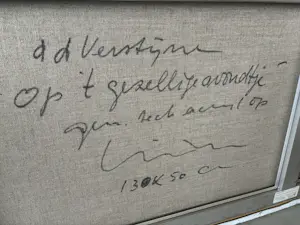 Ad Verstijnen
Op 't gezellige avondtje"
gem. tech acryl op
130 x 50 cm